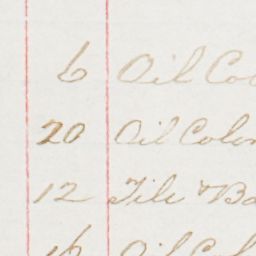 6 Oil Co
20 Oil Color
12 Tile & Ba
16 Oil Col